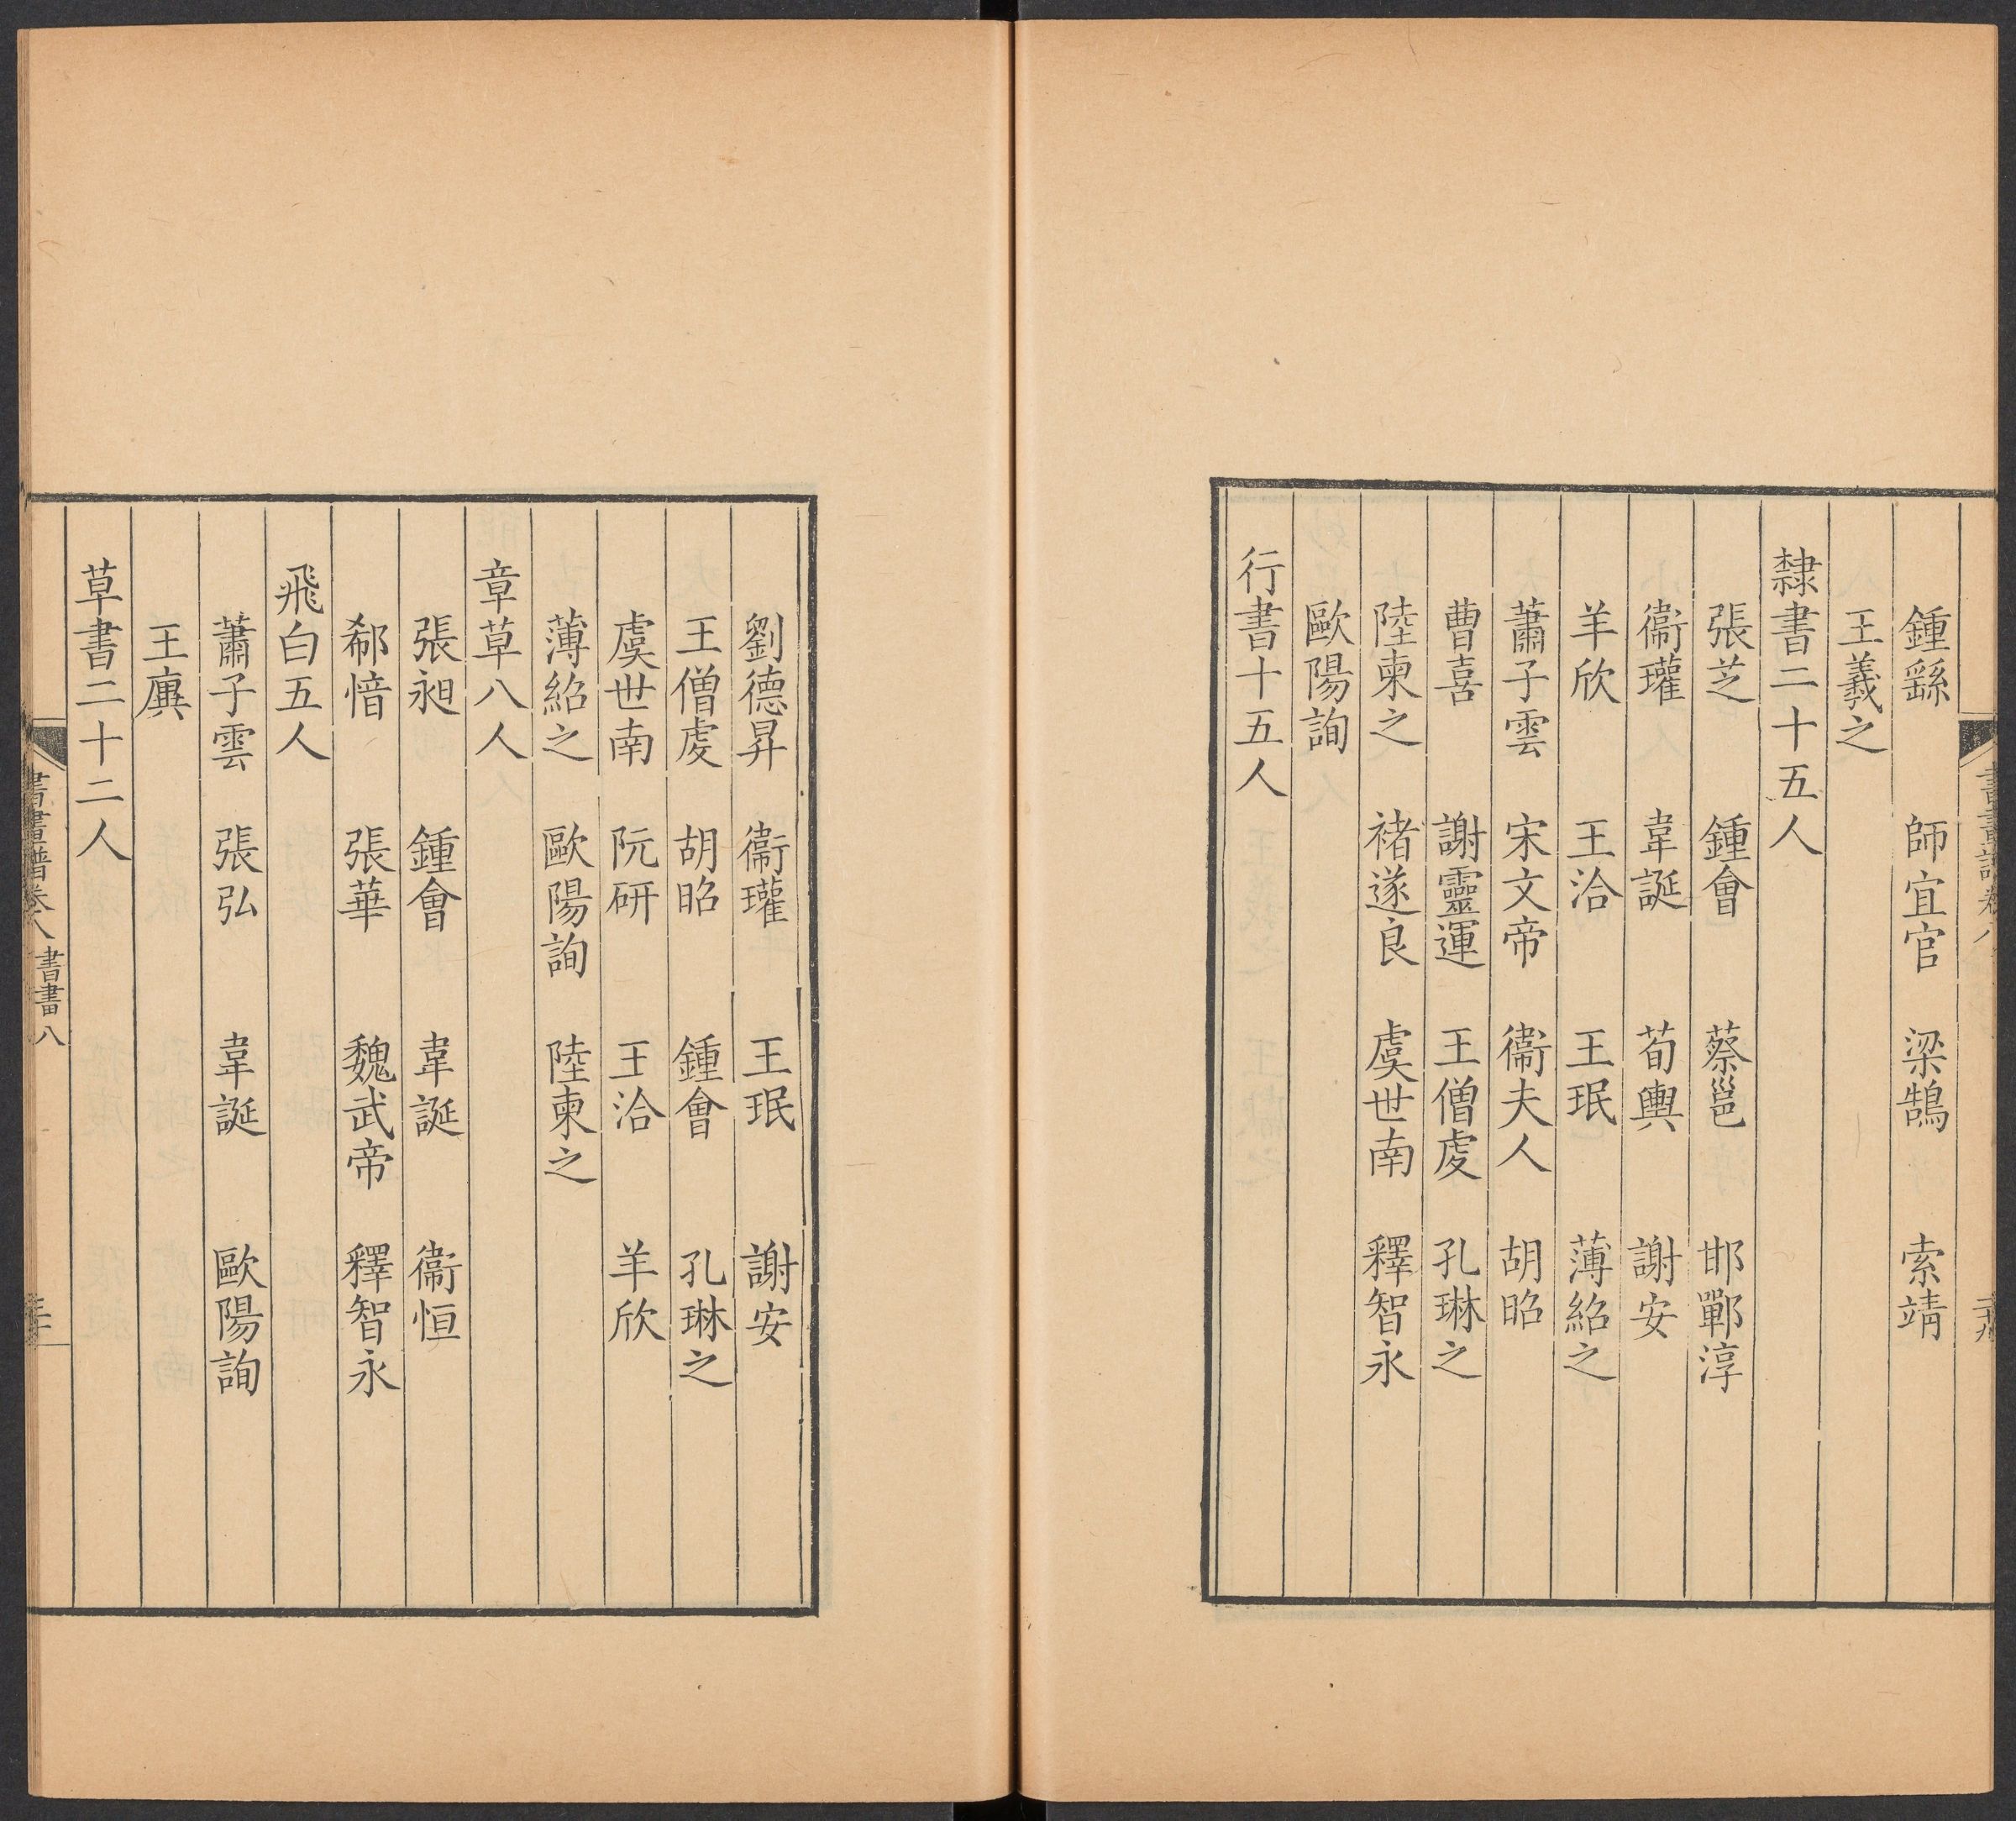 鍾繇 師宜官 梁鵠 索靖
王羲之
隸書二十五人
張芝 鍾會 蔡邕 邯鄲淳
衞瓘 韋誕 荀輿 謝安
羊欣 王洽 王珉 薄紹之
蕭子雲 宋文帝 衞夫人 胡昭
曹喜 謝靈運 王僧虔 孔琳之
陸柬之 褚遂良 虞世南 釋智永
歐陽詢
行書十五人
劉德昇 衞瓘 王珉 謝安
王僧虔 胡昭 鍾會 孔琳之
虞世南 阮研 王洽 羊欣
薄紹之 歐陽詢 陸柬之
章草八人
張昶 鍾會 韋誕 衞恒
郗愔 張華 魏武帝 釋智永
飛白五人
蕭子雲 張弘 韋誕 歐陽詢
王廙
草書二十二人
書畫譜卷八 書書八